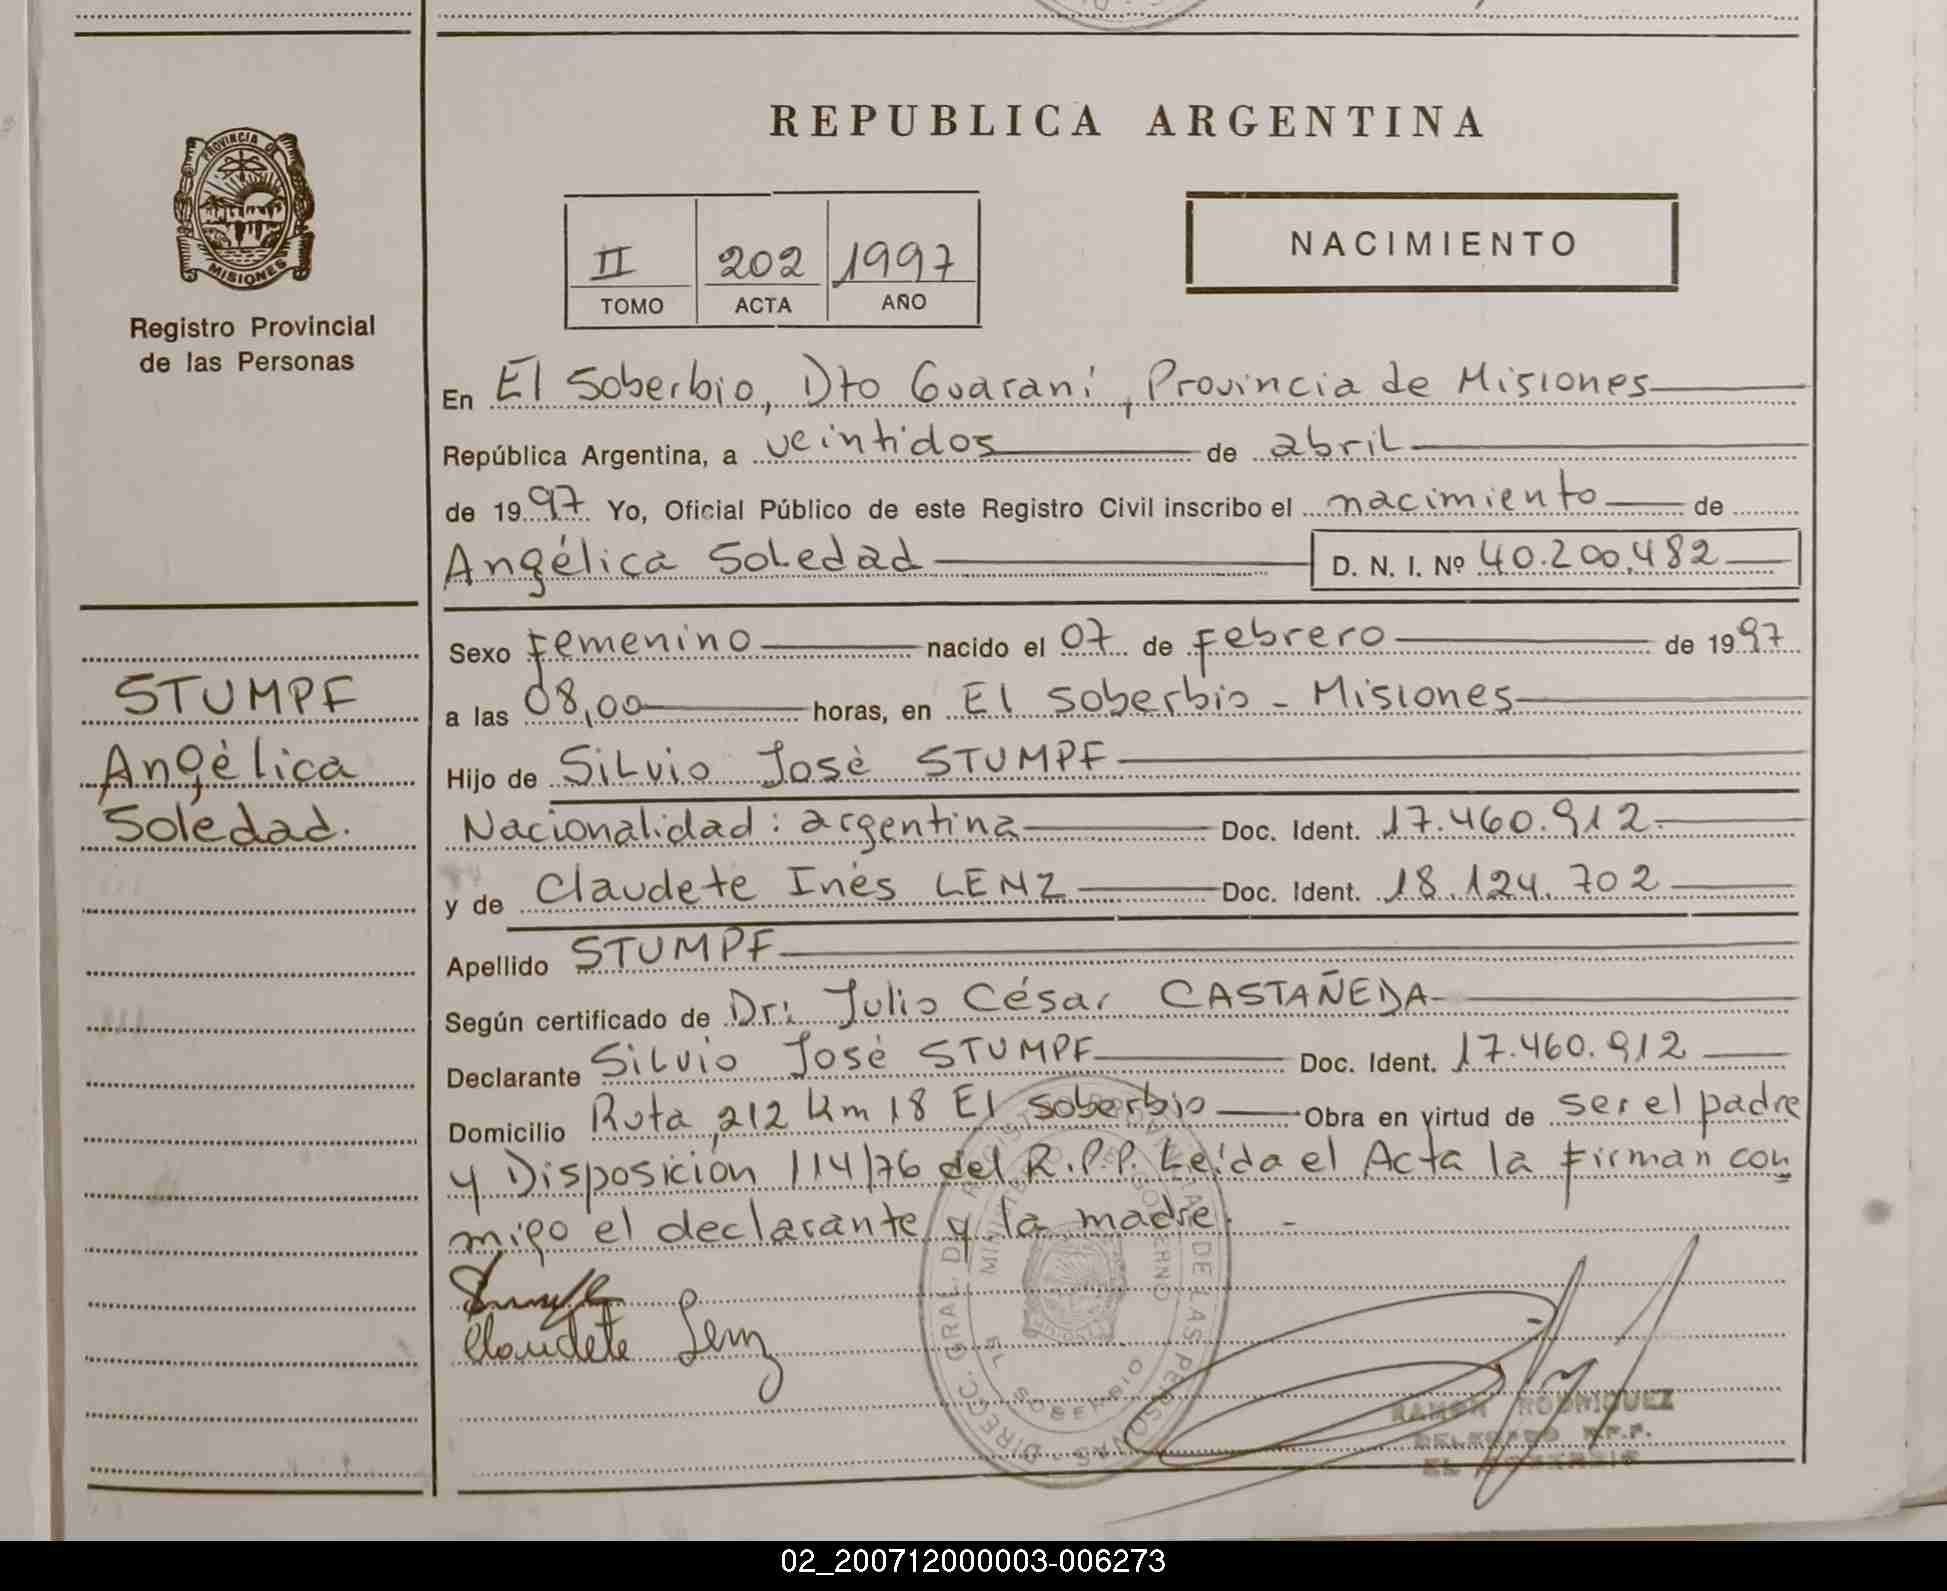 REPUBLICA ARGENTINA
PROVINCIA DE
MISIONES
Registro Provincial
de las Personas
II 202 1997
TOMO ACTA AÑO
NACIMIENTO
En El Soberbio, Dto Guaraní, Provincia de Misiones
República Argentina, a veintidos de abril
de 1997 Yo, Oficial Público de este Registro Civil inscribo el nacimiento de
Angélica Soledad D. N. I. Nº 40.200.482
STUMPF
Angélica
Soledad.
Sexo Femenino nacido el 07 de Febrero de 1997
a las 08,00 horas, en El Soberbio - Misiones
Hijo de Silvio José STUMPF
Nacionalidad: argentina Doc. Ident. 17.460.912
y de Claudete Inés LENZ Doc. Ident. 18.124.702
Apellido STUMPF
Según certificado de Dr: Julio César CASTAÑEDA
Declarante Silvio José STUMPF Doc. Ident. 17.460.912
Domicilio Ruta 212 Km 18 El Soberbio Obra en virtud de ser el padre
y Disposición 114/76 del R.P.P. Leída el Acta la firman con
migo el declarante y la madre. -
Claudete Lenz
DIRECC. GRAL. DE LAS PERSONAS
EL SOBERBIO
RAMON RODRIGUEZ
DELEGADO R.P.P.
EL SOBERBIO
02_200712000003-006273